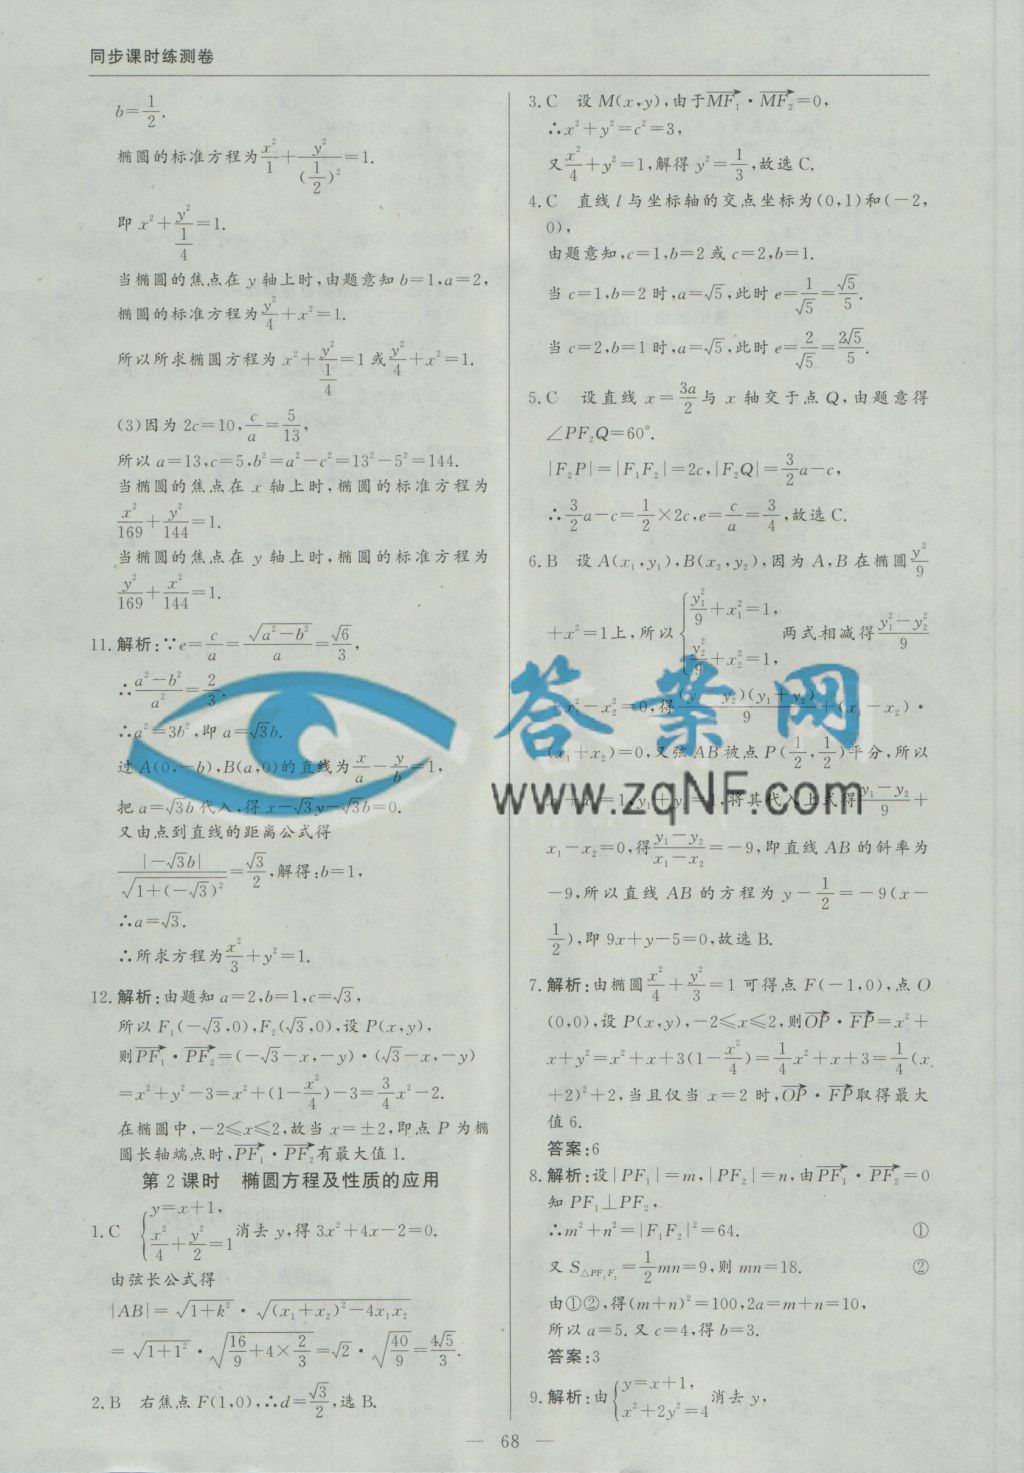 同步课时练测卷
b=1/2.
椭圆的标准方程为x²/1+y²/(1/2)²=1.
即 x²+y²/(1/4)=1.
当椭圆的焦点在 y 轴上时,由题意知 b=1,a=2,
椭圆的标准方程为y²/4+x²=1.
所以所求椭圆方程为 x²+y²/(1/4)=1 或y²/4+x²=1.
(3)因为 2c=10,c/a=5/13,
所以 a=13,c=5,b²=a²-c²=13²-5²=144.
当椭圆的焦点在 x 轴上时,椭圆的标准方程为
x²/169+y²/144=1.
当椭圆的焦点在 y 轴上时,椭圆的标准方程为
y²/169+x²/144=1.
11.解析:∵e=c/a=√(a²-b²)/a=√6/3,
∴(a²-b²)/a²=2/3.
∴a²=3b²,即 a=√3b.
过 A(0,-b),B(a,0)的直线为x/a-y/b=1,
把 a=√3b 代入,得 x-√3y-√3b=0.
又由点到直线的距离公式得
|-√3b|/√(1+(-√3)²)=√3/2,解得:b=1,
∴a=√3.
∴所求方程为x²/3+y²=1.
12.解析:由题知 a=2,b=1,c=√3,
所以 F₁(-√3,0),F₂(√3,0),设 P(x,y),
则PF₁→·PF₂→=(-√3-x,-y)·(√3-x,-y)
=x²+y²-3=x²+(1-x²/4)-3=3/4x²-2.
在椭圆中,-2≤x≤2,故当 x=±2,即点 P 为椭
圆长轴端点时,PF₁→·PF₂→有最大值 1.
第 2 课时 椭圆方程及性质的应用
1.C {y=x+1, x²/4+y²/2=1 消去 y,得 3x²+4x-2=0.
由弦长公式得
|AB|=√(1+k²)·√((x₁+x₂)²-4x₁x₂)
=√(1+1²)·√(16/9+4×2/3)=√2·√(40/9)=4√5/3.
2.B 右焦点 F(1,0),∴d=√3/2,选 B.
3.C 设 M(x,y),由于MF₁→·MF₂→=0,
∴x²+y²=c²=3,
又x²/4+y²=1,解得 y²=1/3,故选 C.
4.C 直线 l 与坐标轴的交点坐标为(0,1)和(-2,
0),
由题意知,c=1,b=2 或 c=2,b=1.
当 c=1,b=2 时,a=√5,此时 e=1/√5=√5/5.
当 c=2,b=1 时,a=√5,此时 e=2/√5=2√5/5.
5.C 设直线 x=3a/2与 x 轴交于点 Q,由题意得
∠PF₂Q=60°.
|F₂P|=|F₁F₂|=2c,|F₂Q|=3/2a-c,
∴3/2a-c=1/2×2c,e=c/a=3/4,故选 C.
6.B 设 A(x₁,y₁),B(x₂,y₂),因为 A,B 在椭圆y²/9
+x²=1上,所以{y₁²/9+x₁²=1, y₂²/9+x₂²=1, 两式相减得(y₁²-y₂²)/9
+x₁²-x₂²=0,得(y₁-y₂)(y₁+y₂)/9+(x₁-x₂)·
(x₁+x₂)=0,又弦 AB 被点 P(1/2,1/2)平分,所以
x₁+x₂=1,y₁+y₂=1,将其代入上式得(y₁-y₂)/9+
x₁-x₂=0,得(y₁-y₂)/(x₁-x₂)=-9,即直线 AB 的斜率为
-9,所以直线 AB 的方程为 y-1/2=-9(x-
1/2),即 9x+y-5=0,故选 B.
7.解析:由椭圆x²/4+y²/3=1 可得点 F(-1,0),点 O
(0,0),设 P(x,y),-2≤x≤2,则OP→·FP→=x²+
x+y²=x²+x+3(1-x²/4)=1/4x²+x+3=1/4(x
+2)²+2,当且仅当 x=2 时,OP→·FP→取得最大
值 6.
答案:6
8.解析:设|PF₁|=m,|PF₂|=n,由PF₁→·PF₂→=0
知 PF₁⊥PF₂,
∴m²+n²=|F₁F₂|²=64. ①
又 S△PF₁F₂=1/2mn=9,则 mn=18. ②
由①②,得(m+n)²=100,2a=m+n=10,
所以 a=5.又 c=4,得 b=3.
答案:3
9.解析:由{y=x+1, x²+2y²=4 消去 y,
答案网
www.zqNF.com
— 68 —